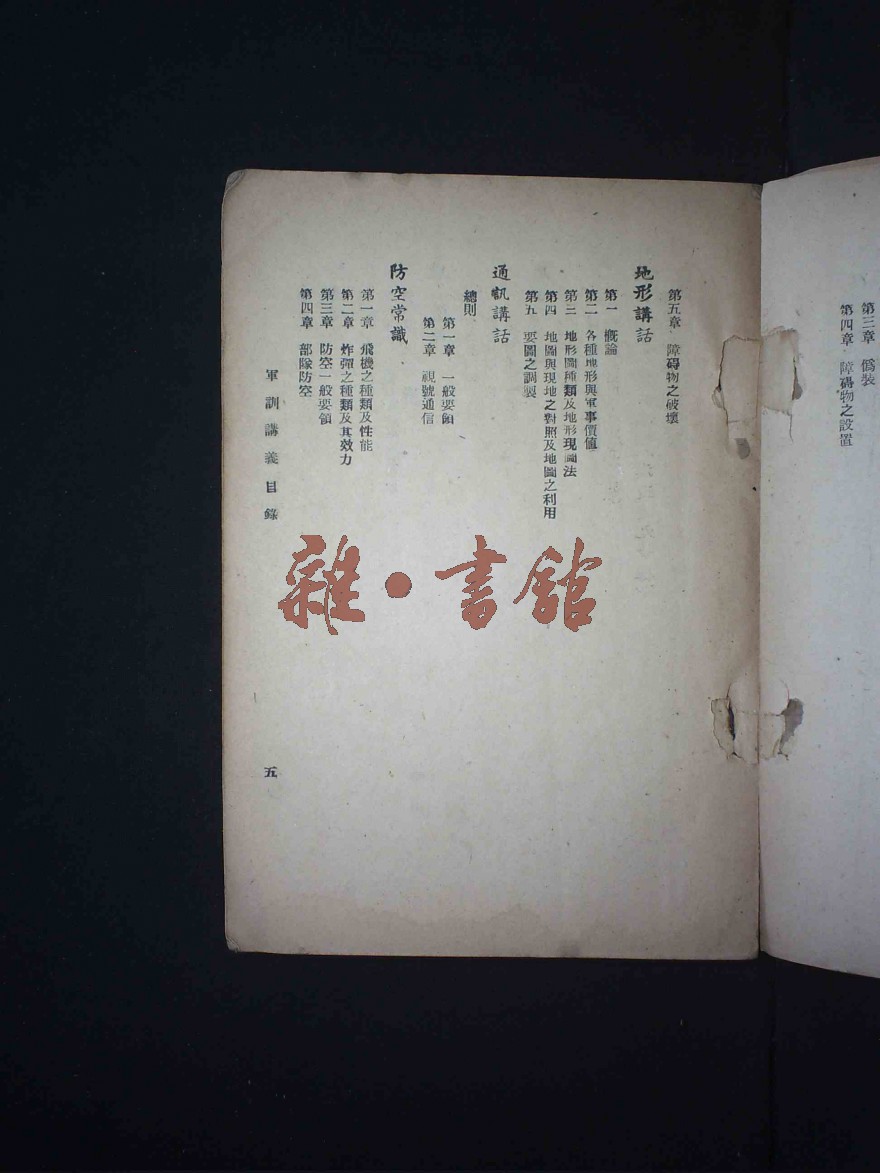 第三章　僞裝
第四章　障碍物之設置
第五章　障碍物之破壞
地形講話
第一　槪論
第二　各種地形與軍事價值
第三　地形圖種類及地形現圖法
第四　地圖與現地之對照及地圖之利用
第五　要圖之調製
通訊講話
總則
第一章　一般要領
第二章　視號通信
防空常識
第一章　飛機之種類及性能
第二章　炸彈之種類及其效力
第三章　防空一般要領
第四章　部隊防空
軍訓講義目錄
五
雜·書館